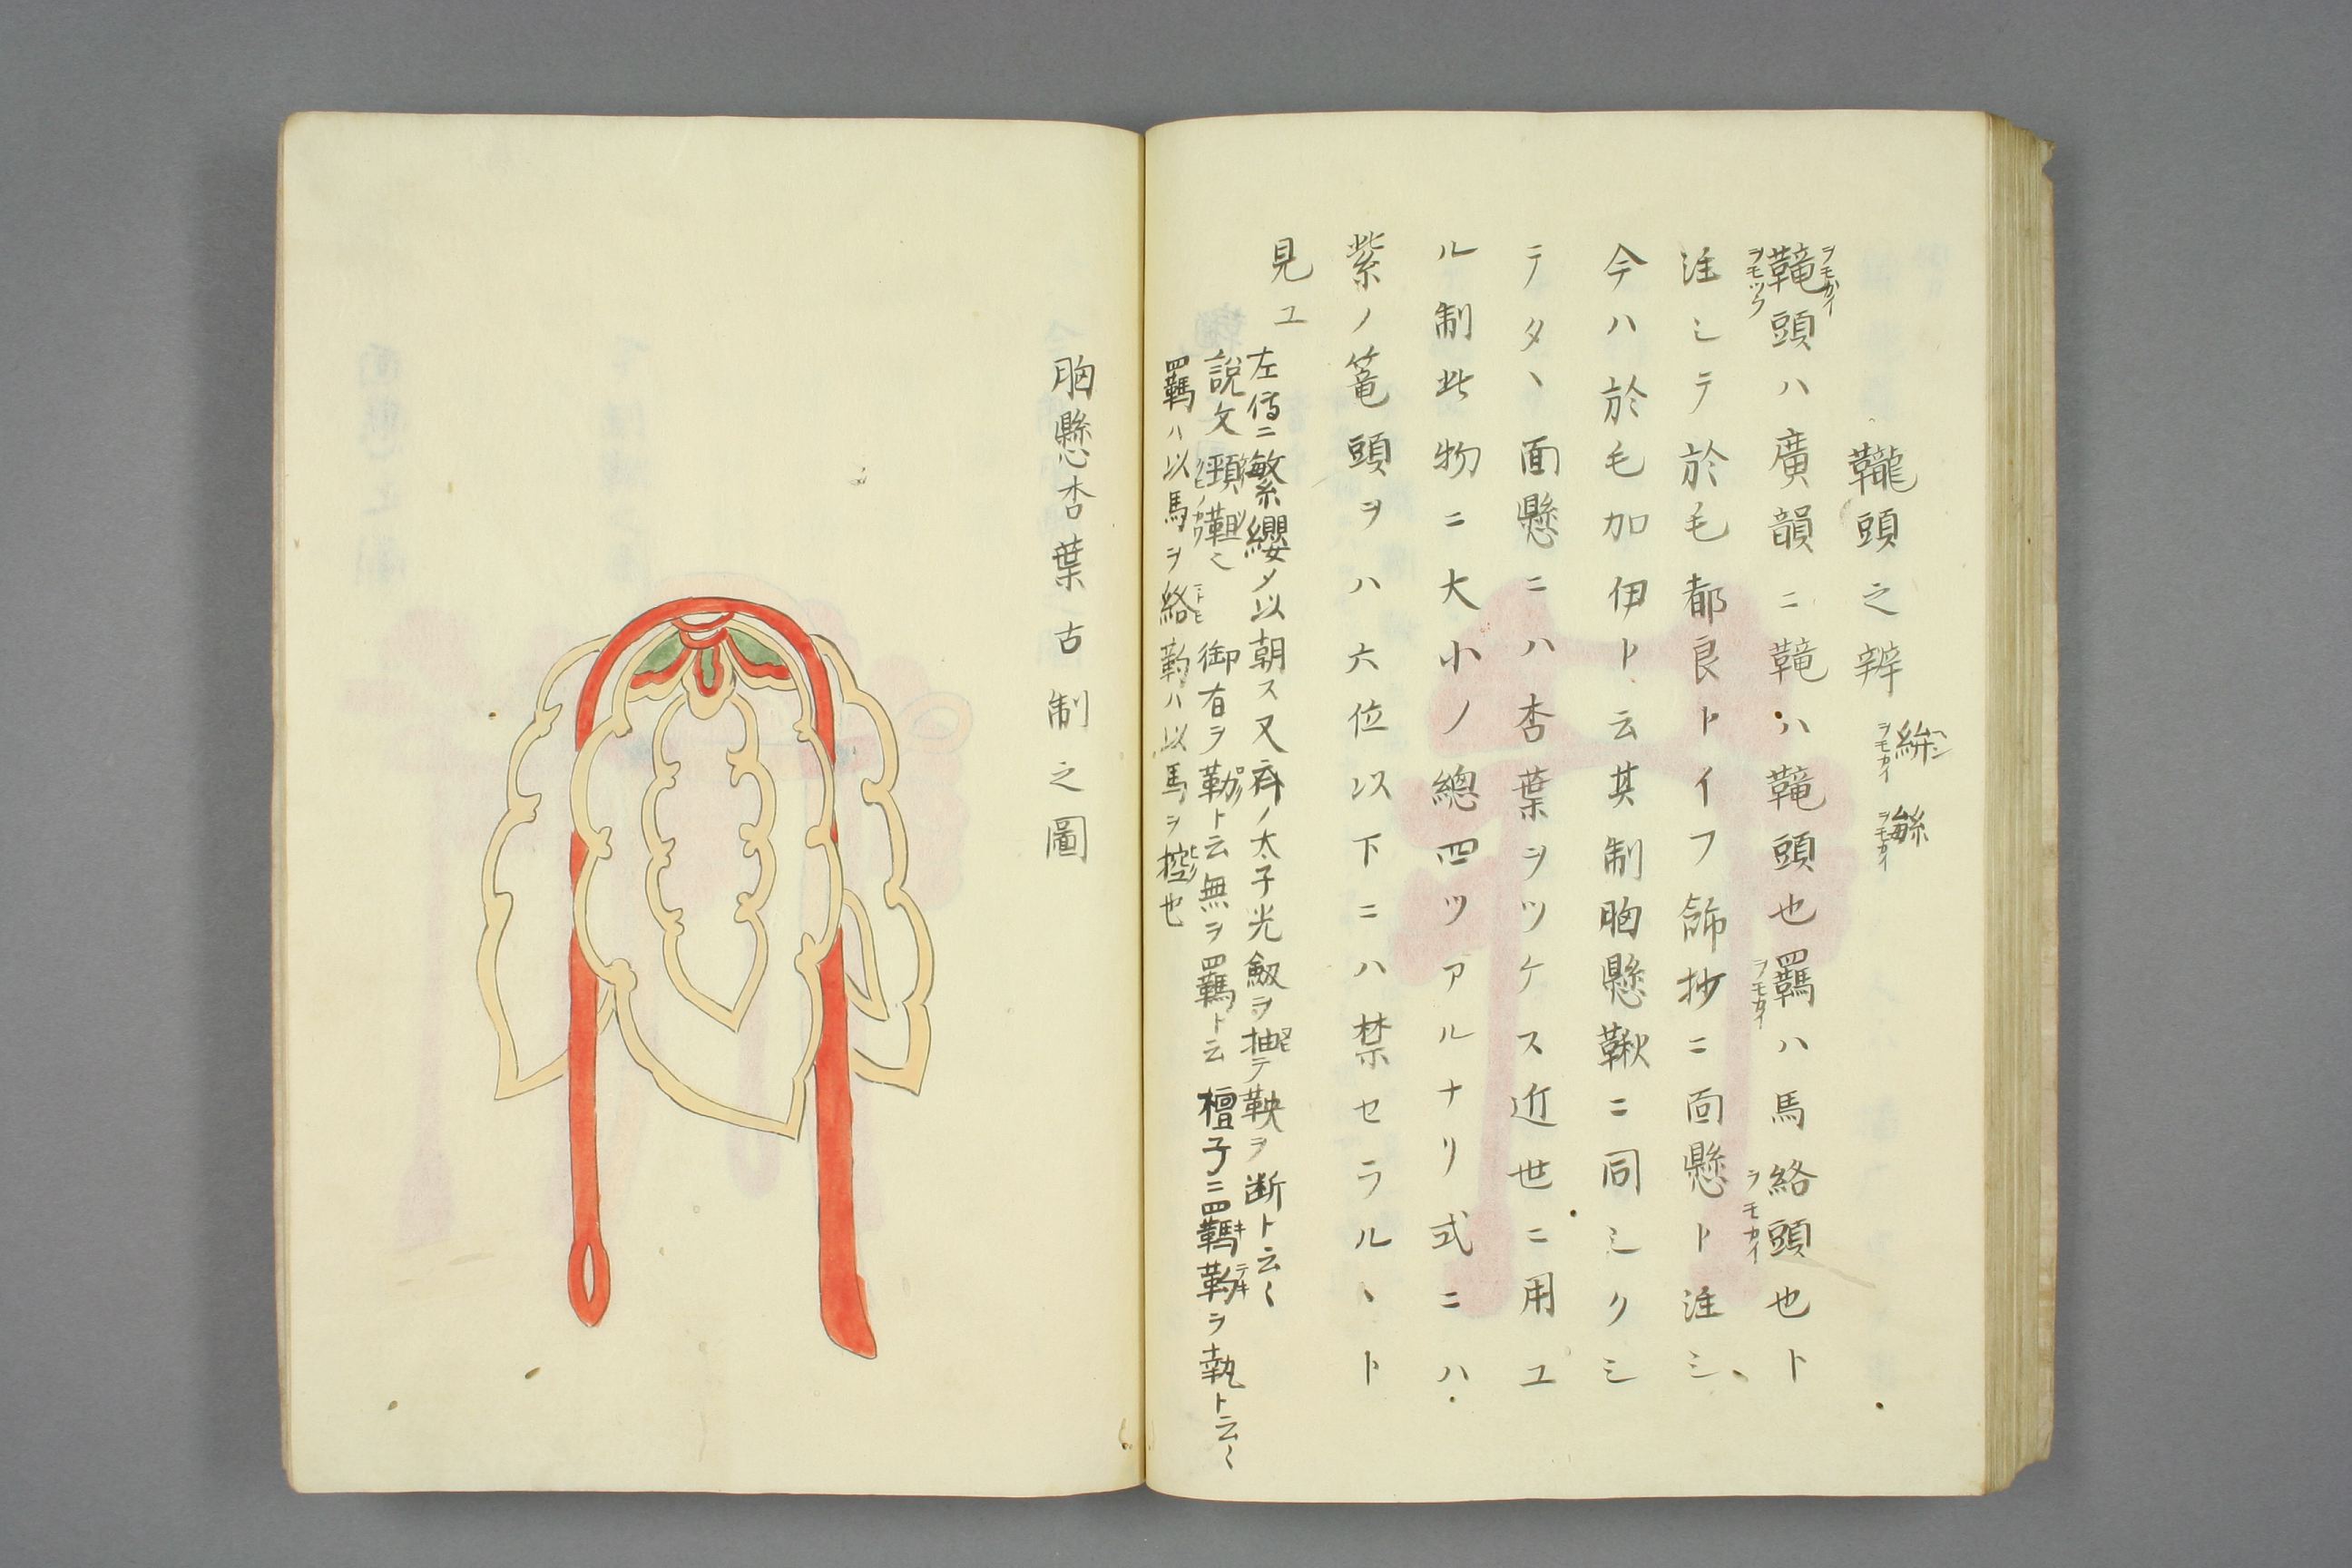 韀頭之辨
絣 ヘン ヲモカイ
䋣 ヲモカイ
鞚頭ハ廣韻ニ鞚ハ鞚頭也羈ハ馬絡頭也ト
ヲモカイ
ヲモツラ
ヲモカイ
ヲモカイ
注シテ於毛都良トイフ餝抄ニ面懸ト注シ
今ハ於毛加伊ト云其制胸懸鞦ニ同シクシ
テタヽ面懸ニハ杏葉ヲツケス近世ニ用ユ
ル制此物ニ大小ノ總四ツアルナリ式ニハ
紫ノ篭頭ヲハ六位以下ニハ禁セラルヽト
見ユ
左傳ニ繁纓メ以朝ス又齊ノ太子光劔ヲ抽テ鞅ヲ断ト云〻
說文頸靼也 御有ヲ勒ト云無ヲ羈ト云 檀子ニ羈靮ヲ執ト云〻
羈ハ以馬ヲ絡靮ハ以馬ヲ控也
胸懸杏葉古制之圖